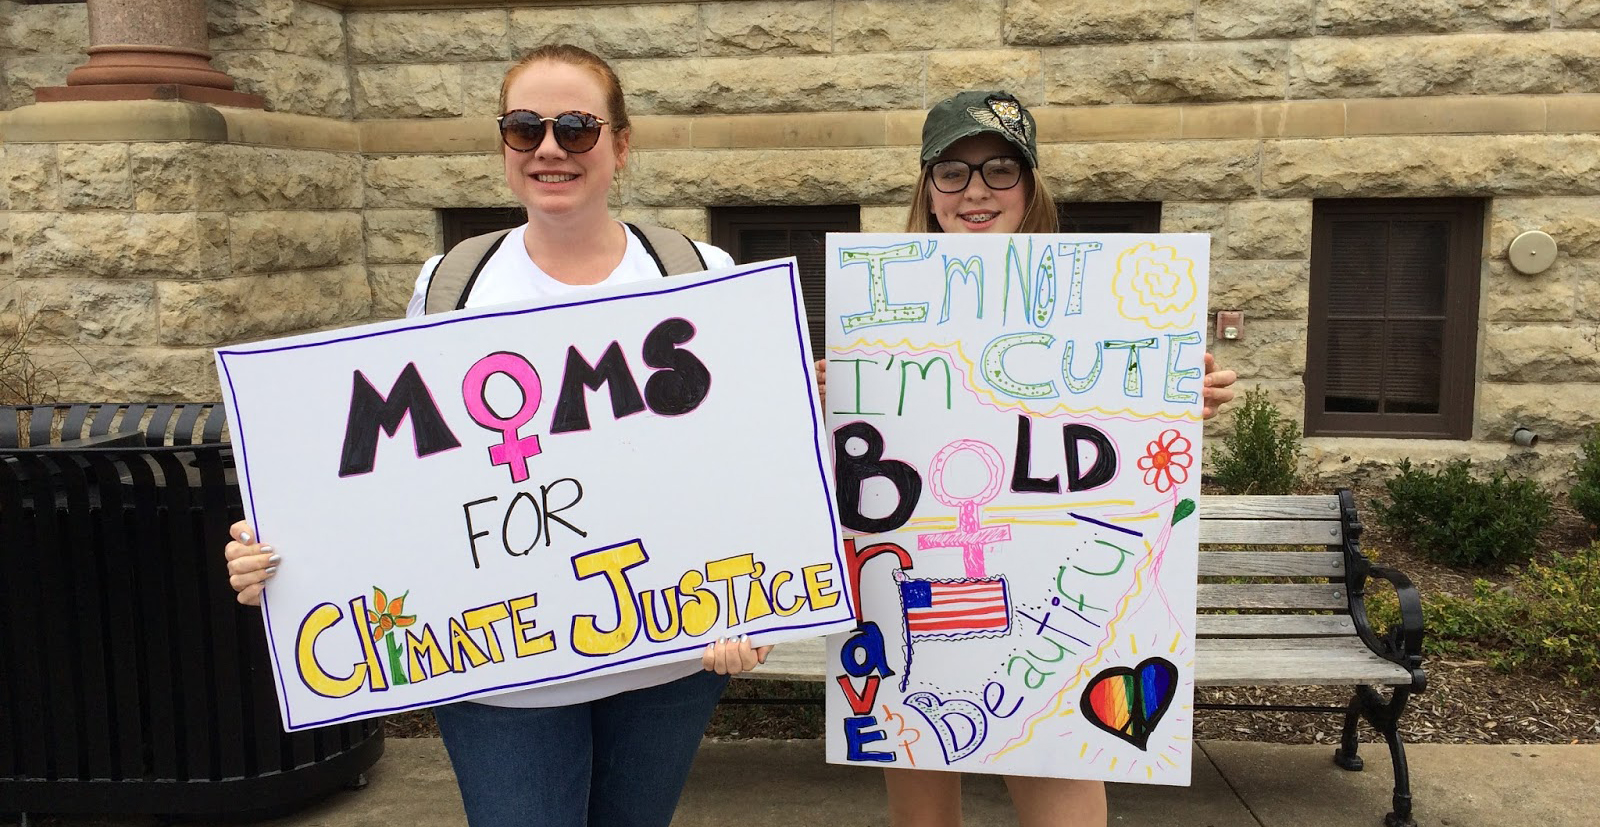 MOMS
FOR
CLIMATE JUSTICE
I'M NOT
CUTE
I'M
BOLD
BraVE
& Beautiful